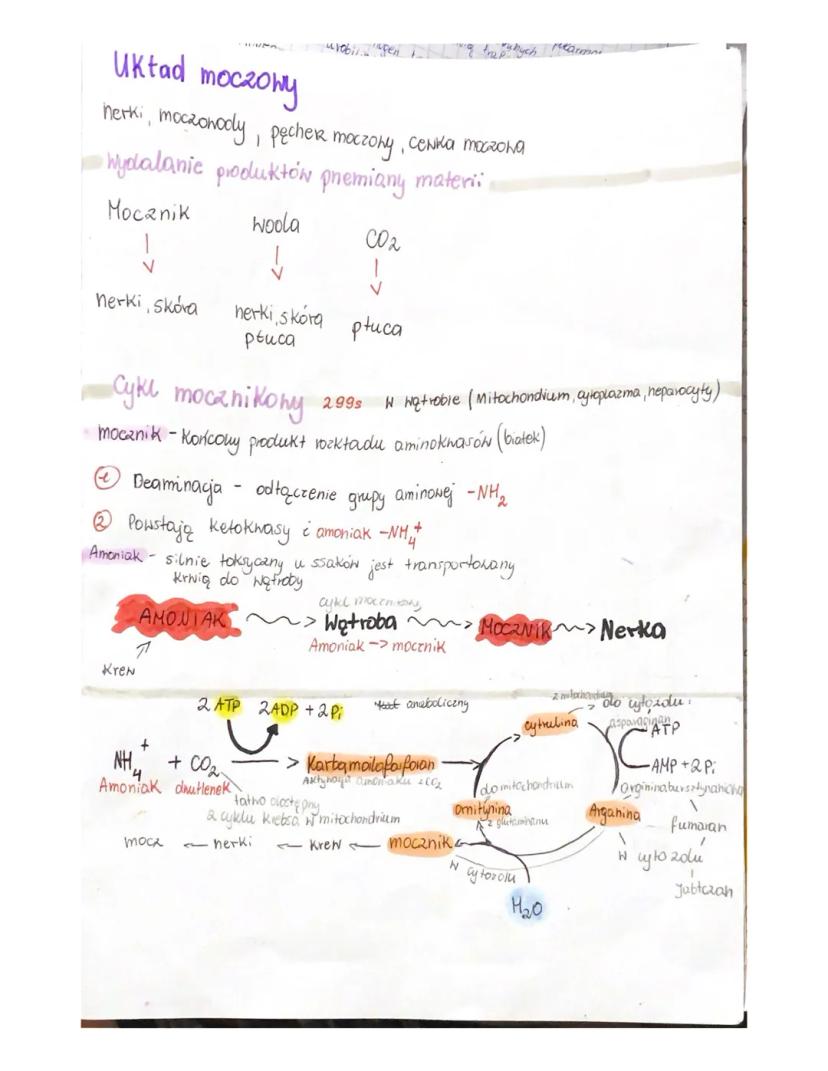 Układ moczowy
nerki, moczowody, pęcherz moczowy, cewka moczowa
Wydalanie produktów pnemiany materii
Mocznik woda CO2
nerki, skóra nerki, skóra płuca
płuca
Cykl mocznikowy 299s W wątrobie (Mitochondium, cytoplazma, heparocyty)
mocznik - Końcowy produkt rozkładu aminokwasów (białek)
1 Deaminacja - odłączenie grupy aminowej -NH2
2 Powstają ketokwasy i amoniak -NH4+
Amoniak - silnie toksyczny u ssaków jest transportowany
krwią do wątroby
cykl mocznikowy
AMONIAK > Wątroba > MOCZNIK > Nerka
Amoniak -> mocznik
Krew
2 ATP 2 ADP + 2 Pi anaboliczny
z mitochondrium -> do cytozolu
cytrulina
asparaginian
ATP
NH4+ + CO2 -> Karbamoilofosforan
AMP + 2Pi
Amoniak dwutlenek Aktywacja amoniaku i CO2 do mitochondrium argininobursztynianowa
łatwo dostępny
z cyklu Krebsa w mitochondrium
Ornitynina Arganina
z glutaminanu
fumaran
mocz <- nerki <- Krew <- mocznik
w cytozolu
W cytozolu
Jabłczan
H2O